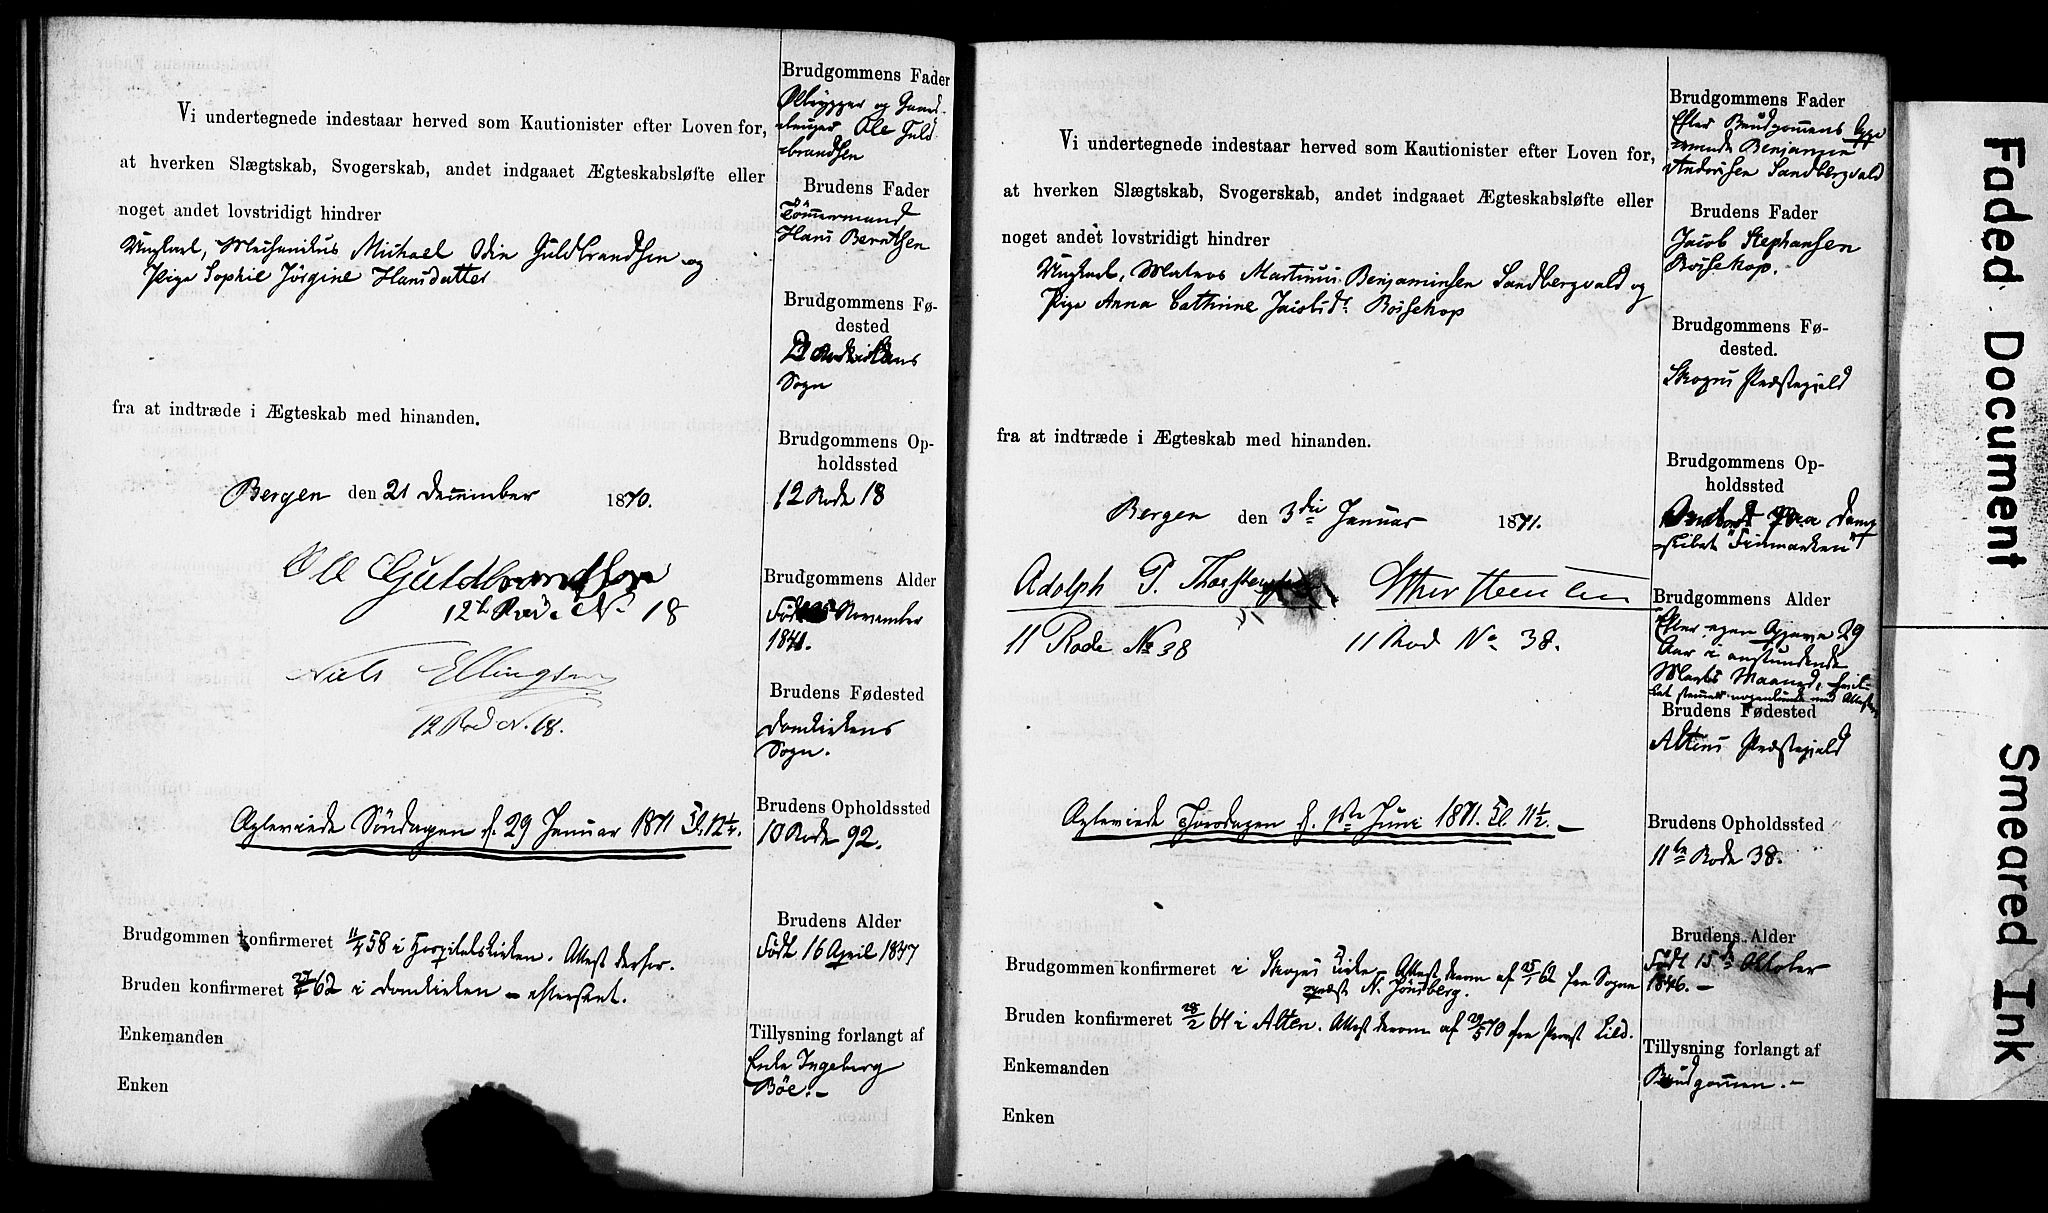 Vi undertegnede indestaar herved som Kautionister efter Loven for,
at hverken Slægtskab, Svogerskab, andet indgaaet Ægteskabsløfte eller
noget andet lovstridigt hindrer
Ungkarl, Mechanikus Michael Odin Guldbrandsen og
Pige Sophie Jörgine Hansdatter
fra at indtræde i Ægteskab med hinanden.
Bergen den 21 December 1870.
Ole Guldbrandsen
12te Rode No 18
Niels Ellingsen
12 Rod N. 18.
Ægteviede Söndagen d. 29 Januar 1871 Kl. 12½.
Brudgommen konfirmeret 11/4 58 i Hospitalskirken. Attest derfor.
Bruden konfirmeret 27/4 62 i Domkirken – eftersent.
Enkemanden
Enken
Brudgommens Fader
Ølbrygger og Gaard-
bruger Ole Guld-
brandsen
Brudens Fader
Tömmermand
Hans Berntsen
Brudgommens Fø-
dested
Domkirkens
Sogn
Brudgommens Op-
holdssted
12 Rode 18
Brudgommens Alder
Født November
1841.
Brudens Fødested
Domkirkens
Sogn.
Brudens Opholdssted
10 Rode 92.
Brudens Alder
Født 16 April 1847
Tillysning forlangt af
Enke Ingeborg
Böe. –
Vi undertegnede indestaar herved som Kautionister efter Loven for,
at hverken Slægtskab, Svogerskab, andet indgaaet Ægteskabsløfte eller
noget andet lovstridigt hindrer
Ungkarl, Matros Martinus Benjaminsen Sandbergvald og
Pige Anna Cathrine Jacobsdr. Bossekop
fra at indtræde i Ægteskab med hinanden.
Bergen den 3die Januar 1871.
Adolph P. Thorstensen
11 Rode No 38
11 Rod No 38.
Ægteviede Torsdagen d. 1ste Juni 1871. Kl. 11½. –
Brudgommen konfirmeret i Skogns Kirke. Attest derom af 25/1 62 fra Sogne
præst N. Jönsberg.
Bruden konfirmeret 28/2 64 i Alten. Attest derom af 29/5 70 fra Præst Lild.
Enkemanden
Enken
Brudgommens Fader
Efter Brudgommens Opgi
vende Benjamin
Andersen Sandbergvald
Brudens Fader
Jacob Stephansen
Bossekop.
Brudgommens Fø-
dested.
Skogns Præstegjeld
Brudgommens Op-
holdssted
Ombord paa Damp
skibet "Finmarken"
Brudgommens Alder
Efter egen Opgivende 29
Aar i anstundende
Marts Maaned, hvil-
ket stemmer nogenlunde med Attesten
Brudens Fødested
Altens Præstegjeld
Brudens Opholdssted
11te Rode 38.
Brudens Alder
Født 15de Oktober
1846. –
Tillysning forlangt af
Brudgommen. –
Faded Document
Smeared Ink